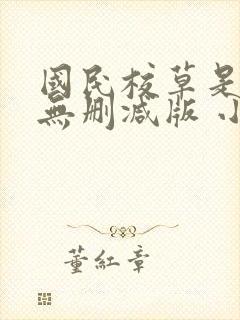 國民校草是
無刪減版 小
董紅章